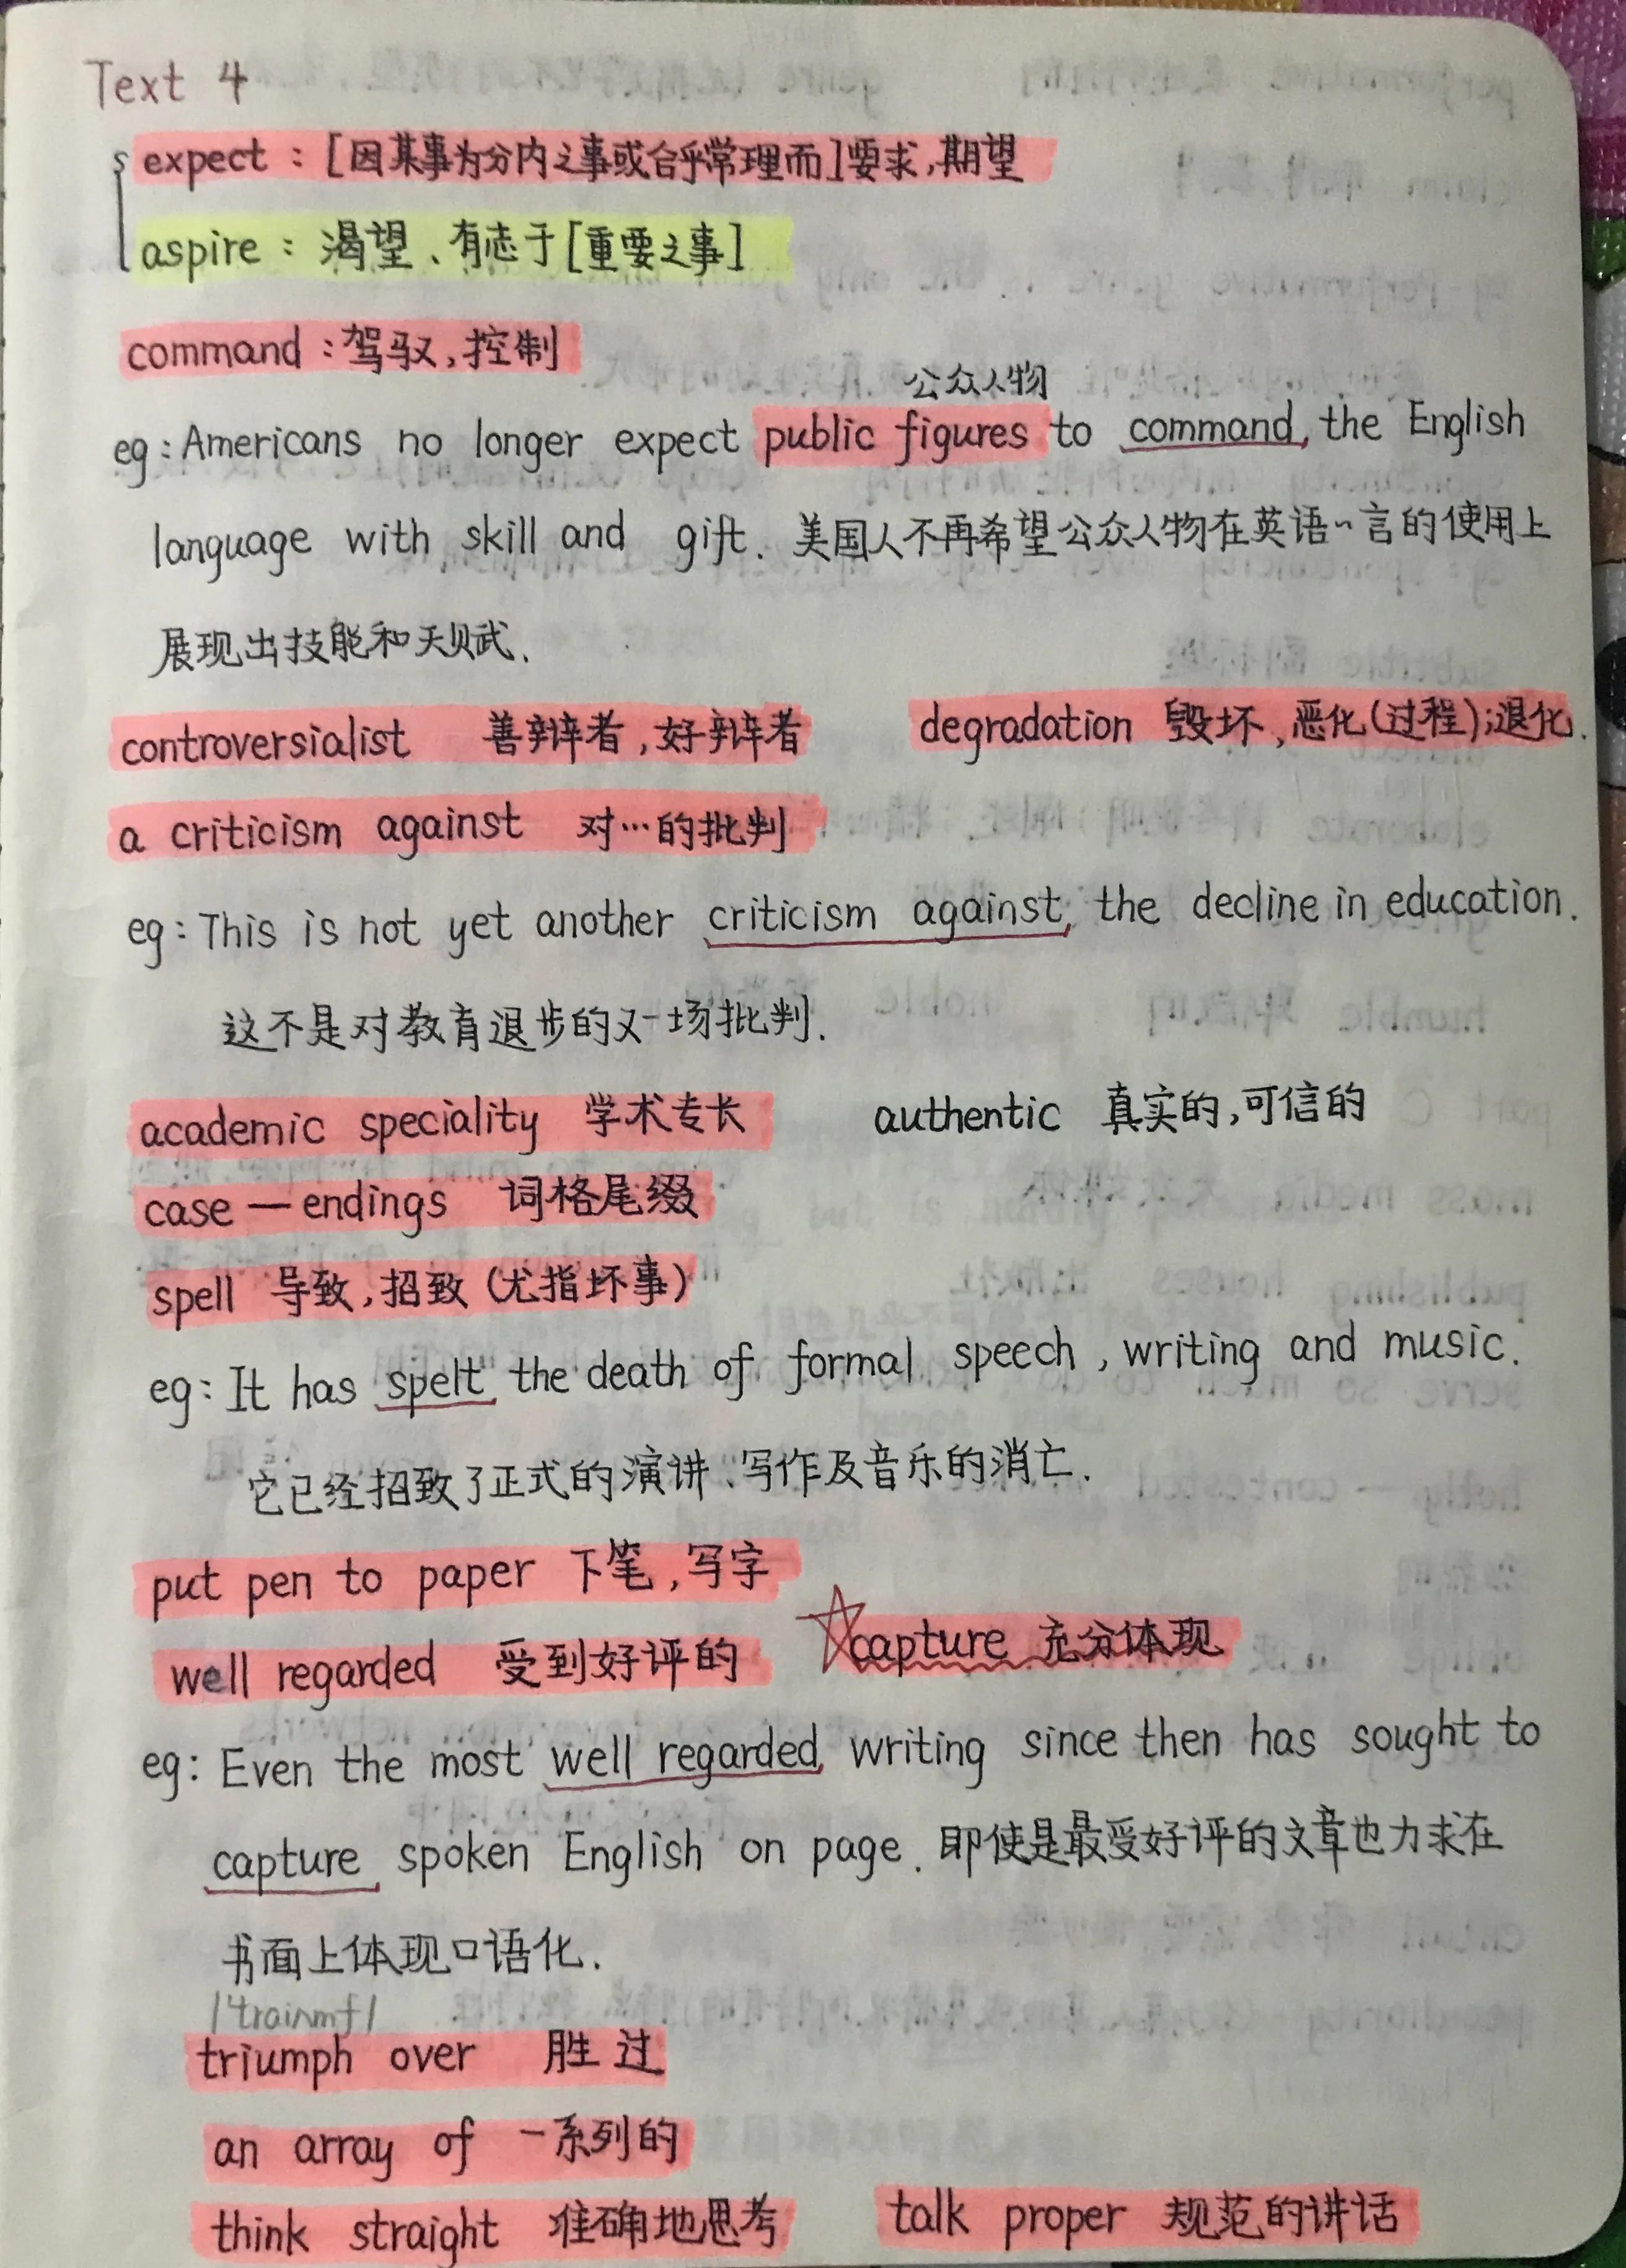 Text 4
expect：[因某事为分内之事或合乎常理而]要求,期望
aspire：渴望、有志于[重要之事]
command：驾驭,控制
公众人物
eg：Americans no longer expect public figures to command the English
language with skill and gift. 美国人不再希望公众人物在英语~言的使用上
展现出技能和天赋.
controversialist 善辩者,好辩者 degradation 毁坏,恶化(过程);退化.
a criticism against 对…的批判
eg：This is not yet another criticism against the decline in education.
这不是对教育退步的又一场批判.
academic speciality 学术专长 authentic 真实的,可信的
case—endings 词格尾缀
spell 导致,招致(尤指坏事)
eg：It has spelt the death of formal speech, writing and music.
它已经招致了正式的演讲、写作及音乐的消亡.
put pen to paper 下笔,写字
well regarded 受到好评的 capture 充分体现
eg：Even the most well regarded writing since then has sought to
capture spoken English on page. 即使是最受好评的文章也力求在
书面上体现口语化.
triumph over 胜过
an array of 一系列的
think straight 准确地思考 talk proper 规范的讲话